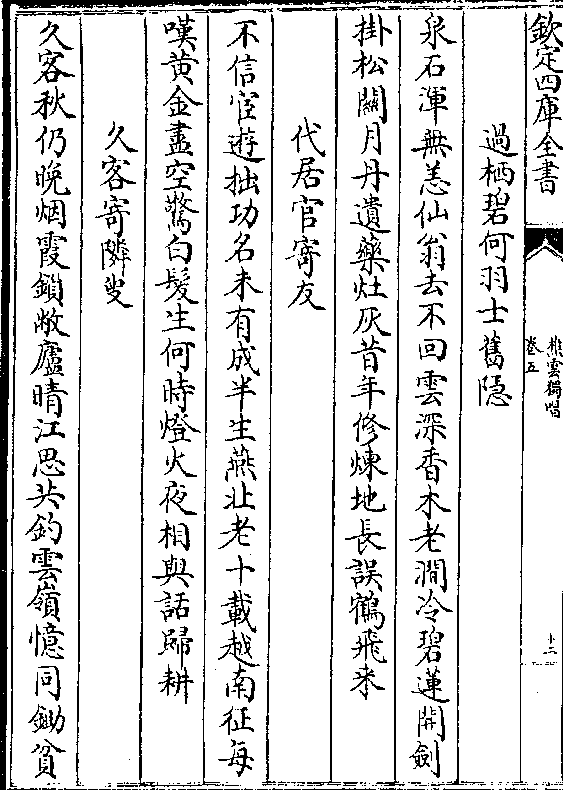 欽定四庫全書
樵雲獨唱
卷五
十二
過栖碧何羽士舊隐
泉石渾無恙仙翁去不回雲深香木老澗冷碧蓮開劍
掛松關月丹遺藥灶灰昔年修煉地長誤鶴飛来
代居官寄友
不信宦遊拙功名未有成半生燕北老十載越南征每
嘆黄金盡空驚白髪生何時燈火夜相與話歸耕
久客寄隣叟
久客秋仍晚烟霞鎻敝廬晴江思共釣雲嶺憶同鋤貧